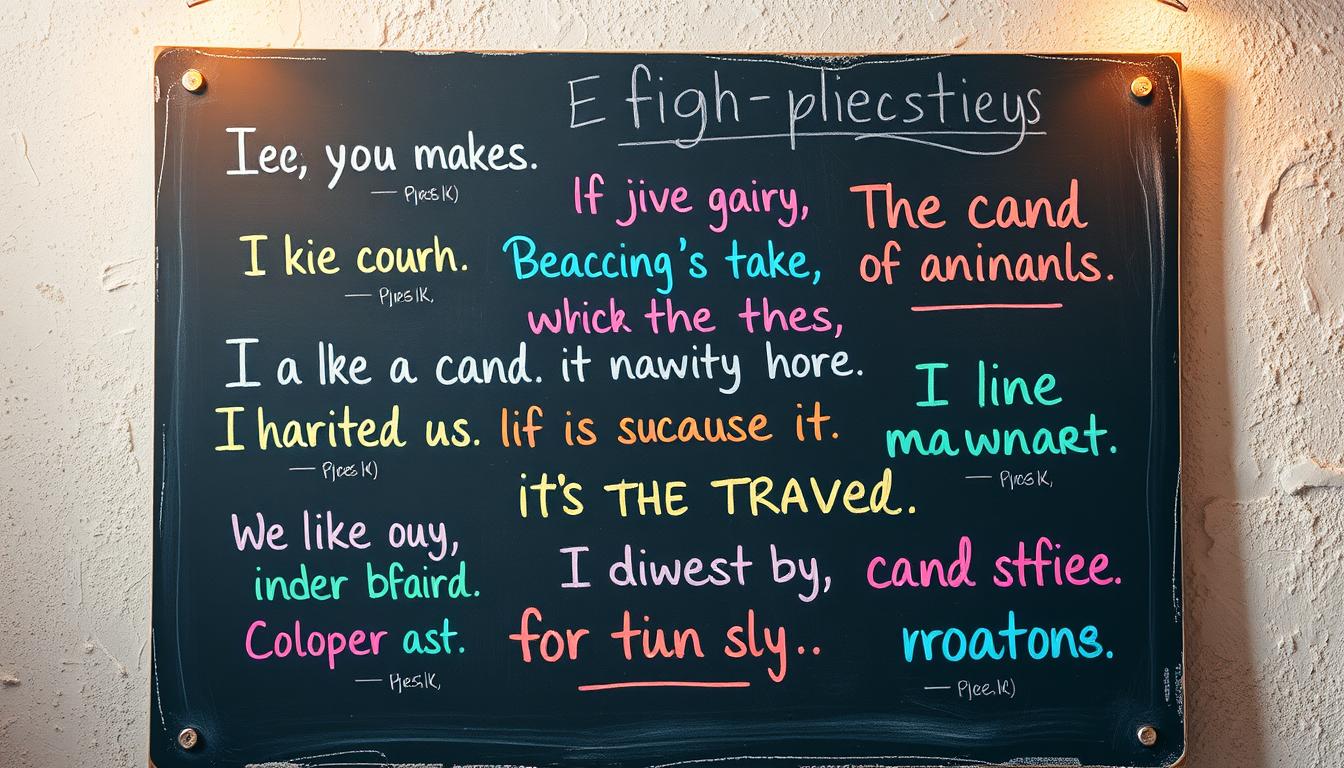 E figh-pliecstieys
Iee, you makes.
I kie courh.
If jive gairy,
Beaccing's take,
whick the thes,
The cand
of aninanls.
I a lke a cand. it nawity hore.
I harited us. lif is sucause it.
it's THE TRAVed.
I line
mawnart.
We like ouy,
inder bfaird.
Coloper ast.
I diwest by,
for tun sly..
cand stfiee.
rroatons.